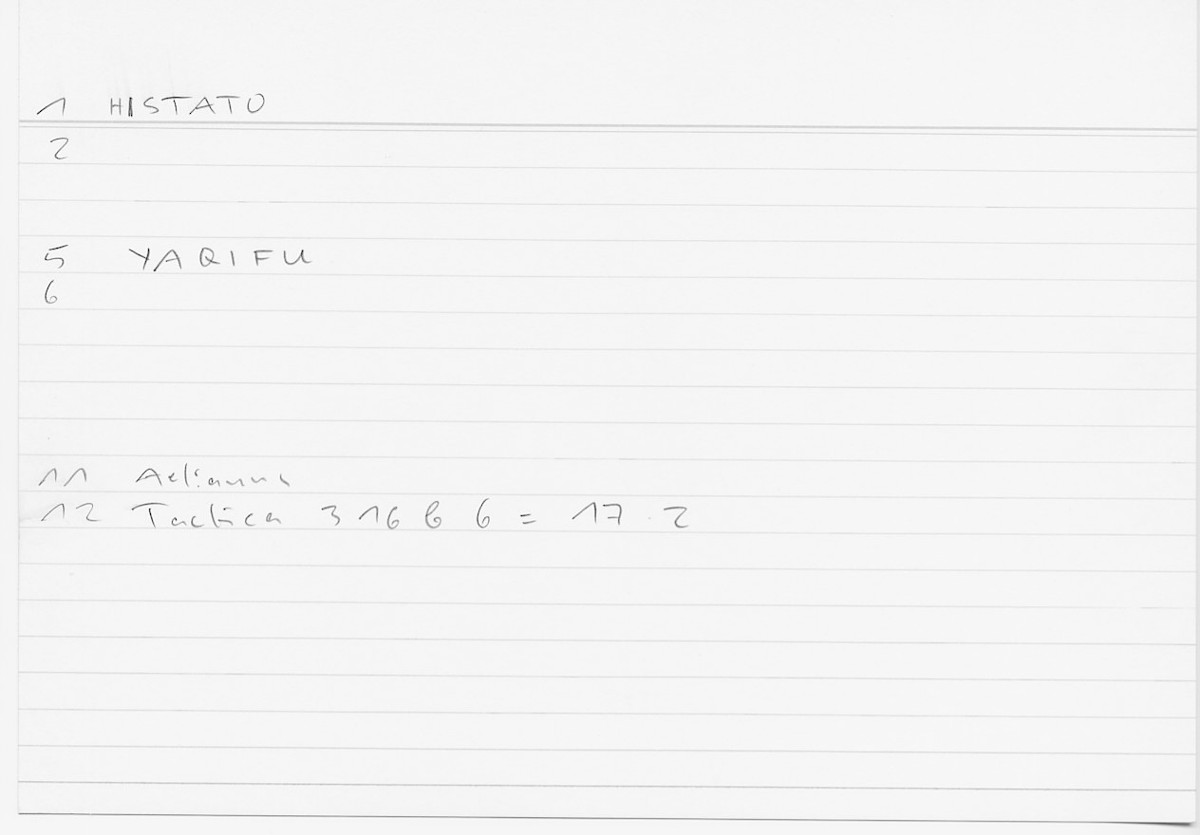 1 HISTATO
2
5 YAQIFU
6
11 Aelianus
12 Tactica 316 b 6 = 17.2